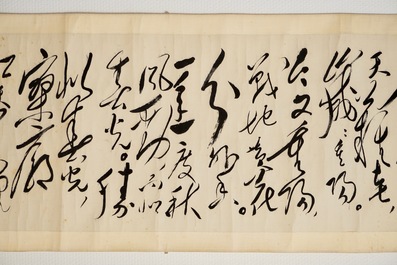 天難老,
歲〻重陽。
今又重陽,
戰地黄花
分外香。
一年一度秋
風勁不似
春光。勝
似春光,
寥廓